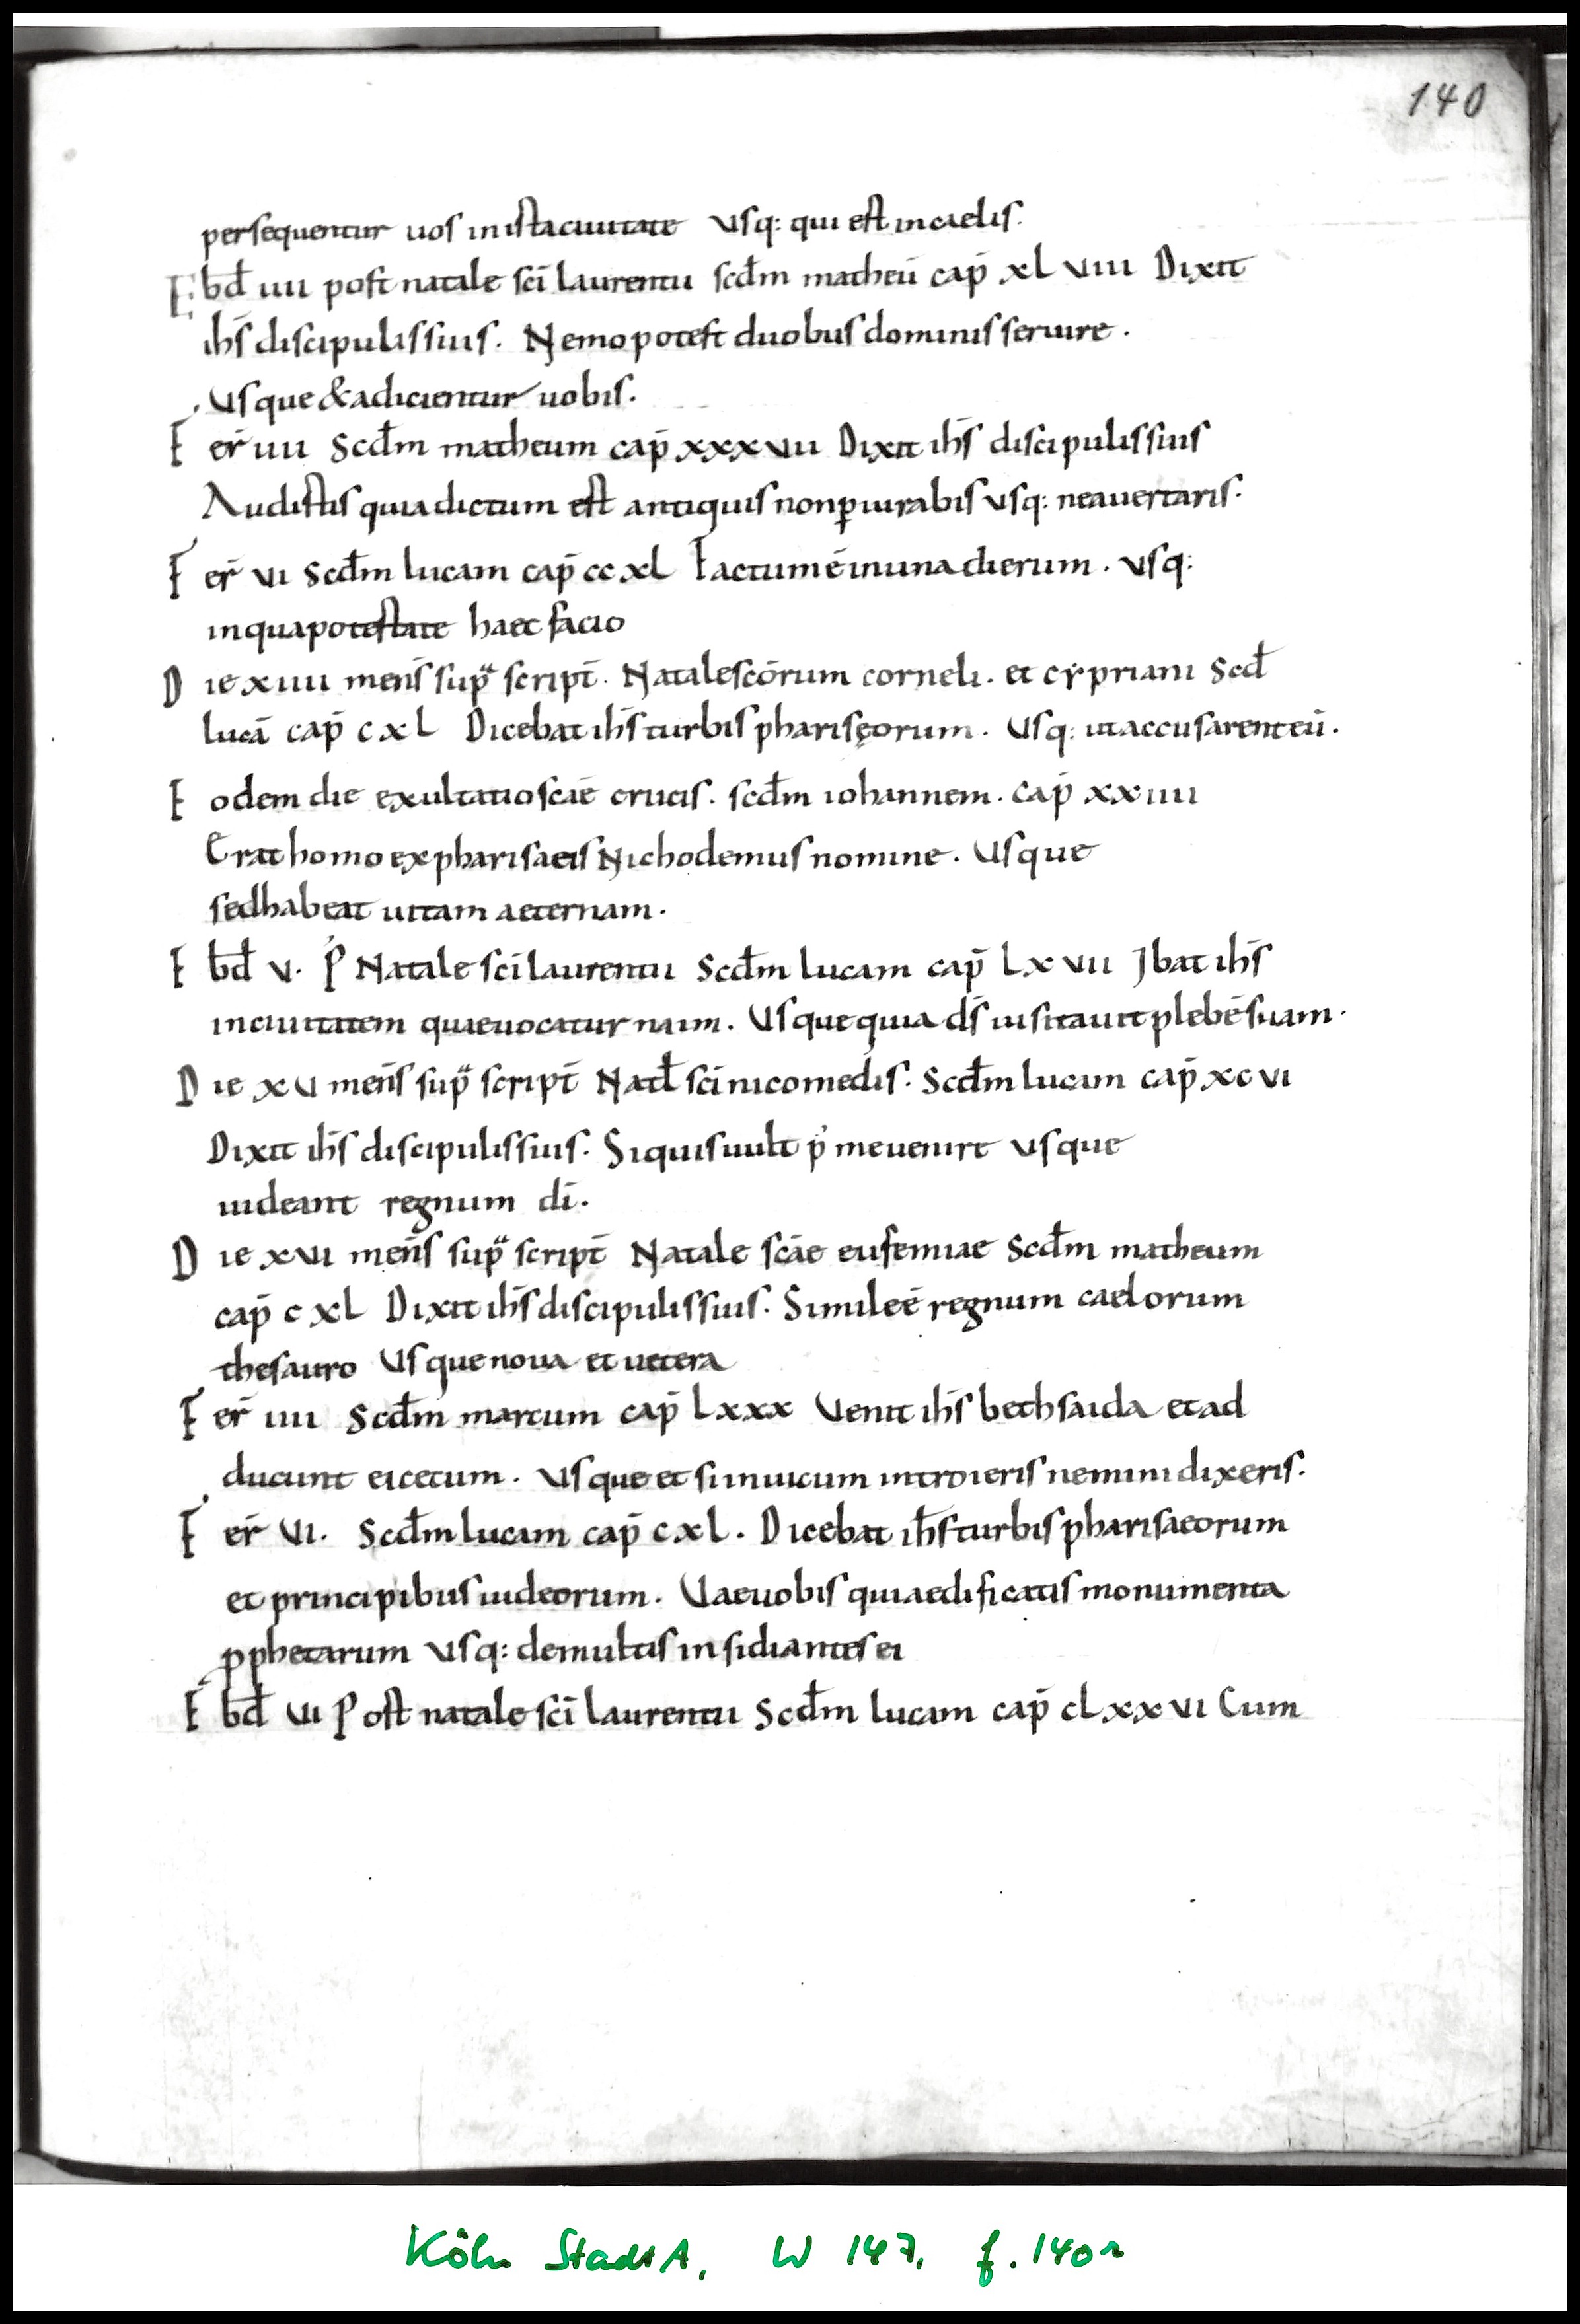 140
persequentur uos inistaciuitate Usq: qui est incaelis.
Ebd̄ IIII post natale sc̄i laurentii scd̄m matheū cap̄ XL VIII Dixit
ih̄s discipulissuis. Nemopotest duobusdominisseruire.
Usque &adicientur uobis.
F er̄ IIII Scd̄m matheum cap̄ XXXVIII Dixit ih̄s discipulissuis
Audistis quiadictum est antiquis nonꝑiurabis usq: neauertaris.
F er̄ VI Scd̄m lucam cap̄ CCXL Factumēinunadierum. Usq:
inquapotestate haec facio
D ie XIIII mens̄ supͣ script̄. Natalescōrum corneli. et cẏpriani Scd̄
lucā cap̄ CXL Dicebat ih̄sturbis pharisęorum. Usq: utaccusarenteū.
E odem die exultatioscāe crucis. scd̄m iohannem. cap̄ XXIIII
Erat homo expharisaeis Nichodemus nomine. Usque
sedhabeat uitam aeternam.
E bd̄ V. P̕ Natale sc̄i laurentii Scd̄m lucam cap̄ LXVII Ibat ih̄s
inciuitatem quaeuocatur naim. Usquequia d̄s uisitauit plebēsuam.
D ie XV mens̄ supͣ script̄ Natl̄ sc̄i nicomedis. Scd̄m lucam cap̄ XCVI
Dixit ih̄s discipulissuis. Siquisuult p̕ meuenire usque
uideant regnum dī.
D ie XVI mens̄ supͣ script̄ Natale scāe eufemiae Scd̄m matheum
cap̄ CXL Dixit ih̄sdiscipulissuis. Simileē regnum caelorum
thesauro Usquenoua et uetera
F er̄ IIII Scd̄m marcum cap̄ LXXX Uenit ih̄s bethsaida etad
ducunt eicecum. Usque et siinuicum introieris neminidixeris.
F er̄ VI. Scd̄m lucam cap̄ CXL. Dicebat ih̄sturbispharisaeorum
et principibus iudeorum. Uaeuobis quiaedificatis monumenta
ꝓphetarum Usq: demultis insidiantes ei
E bd̄ VI Post natale sc̄i laurentii Scd̄m lucam cap̄ CLXXVI Cum
Köln StadtA, W 147, f. 140r